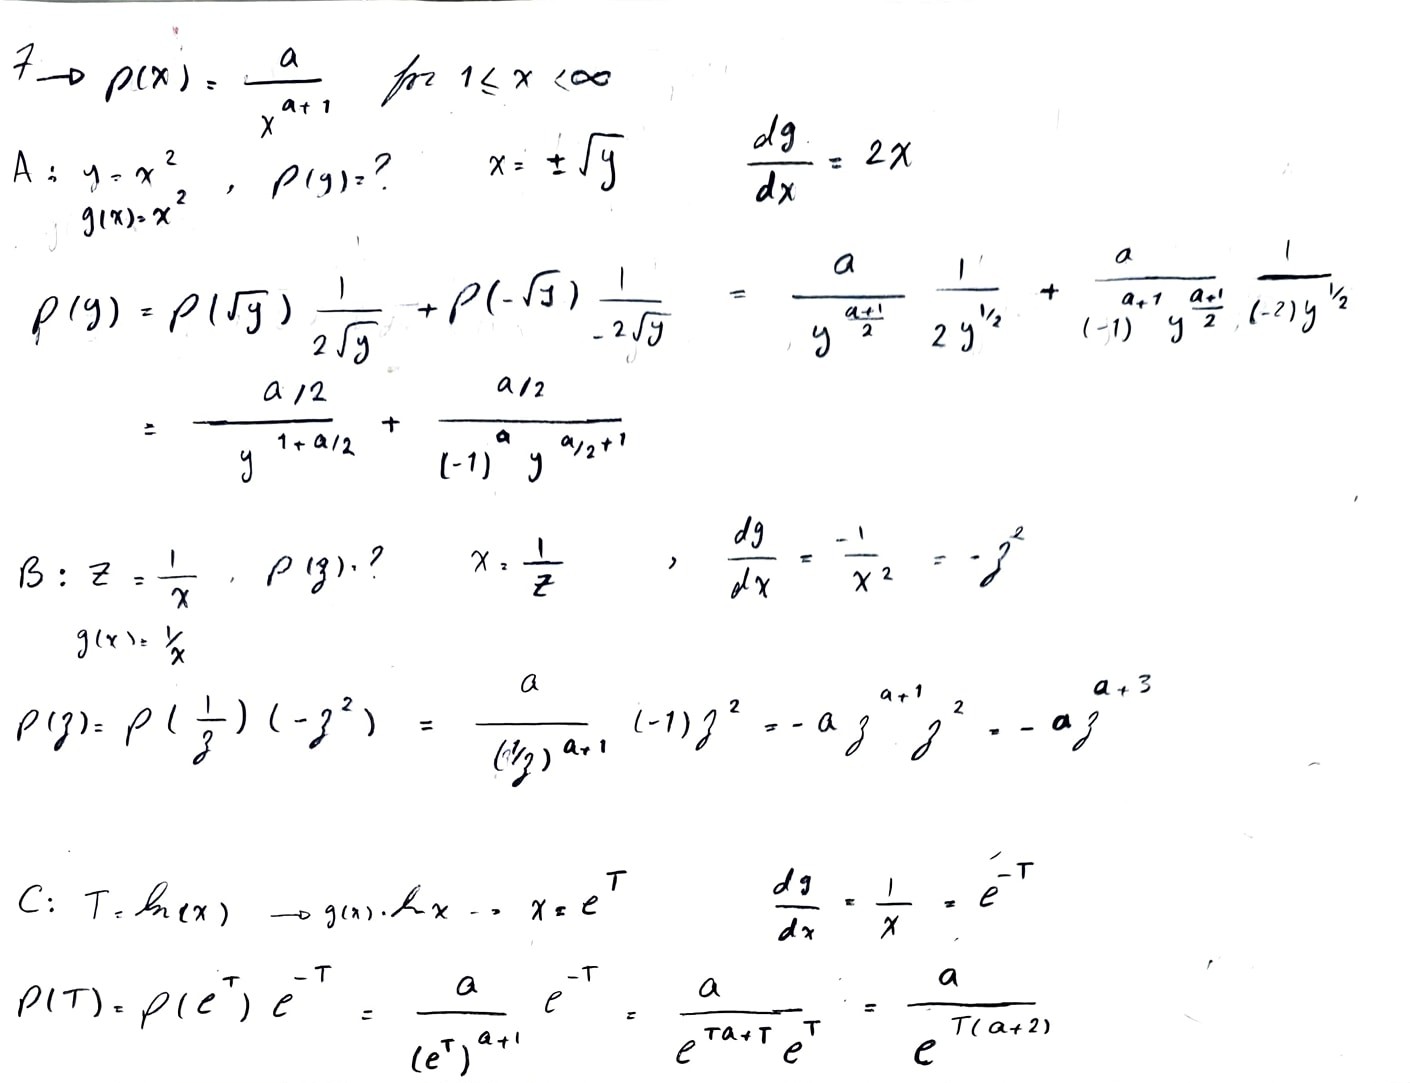 7 → p(x) = a / x^(a+1) for 1 ≤ x < ∞
A : y = x² , P(y) = ? x = ± √y dg/dx = 2x
g(x) = x²
p(y) = p(√y) 1/(2√y) + p(-√y) 1/(-2√y) = a / y^((a+1)/2) 1/(2y^(1/2)) + a / ((-1)^(a+1) y^((a+1)/2)) 1/((-2)y^(1/2))
= (a/2) / y^(1+a/2) + (a/2) / ((-1)^a y^(a/2+1))
B : z = 1/x , p(z) = ? x = 1/z , dg/dx = -1/x² = -z²
g(x) = 1/x
p(z) = p(1/z) (-z²) = a / (1/z)^(a+1) (-1) z² = - a z^(a+1) z² = - a z^(a+3)
C : T = ln(x) → g(x) = ln x --> x = e^T dg/dx = 1/x = e^(-T)
p(T) = p(e^T) e^(-T) = a / (e^T)^(a+1) e^(-T) = a / (e^(Ta+T) e^T) = a / e^(T(a+2))